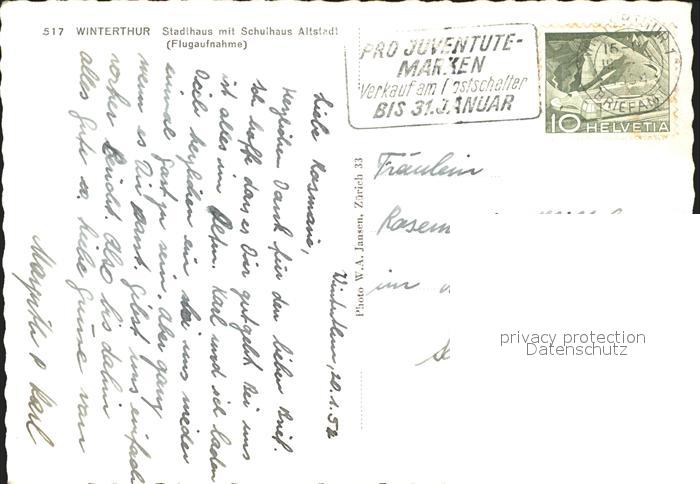 517 WINTERTHUR Stadthaus mit Schulhaus Altstadt
(Flugaufnahme)
PRO JUVENTUTE-
MARKEN
Verkauf am Postschalter
BIS 31. JANUAR
BRIEFAMT
10 HELVETIA
Photo W. A. Jansen, Zürich 33
Winterthur, 20.1.52
Liebe Rosmarie,
Herzlichen Dank für den lieben Brief.
Ich hoffe dass es Dir gut geht. Bei uns
ist alles im Karl und ich laden
Dich herzlichen ein bei uns wieder
einmal Gast zu sein. Aber ganz
wenn es Dir passt. Gibst uns einfach
vorher Bericht. Also bis dahin
alles Gute u. liebe Grüsse von
Margrith & Karl
Fräulein
Rosem
im
privacy protection
Datenschutz